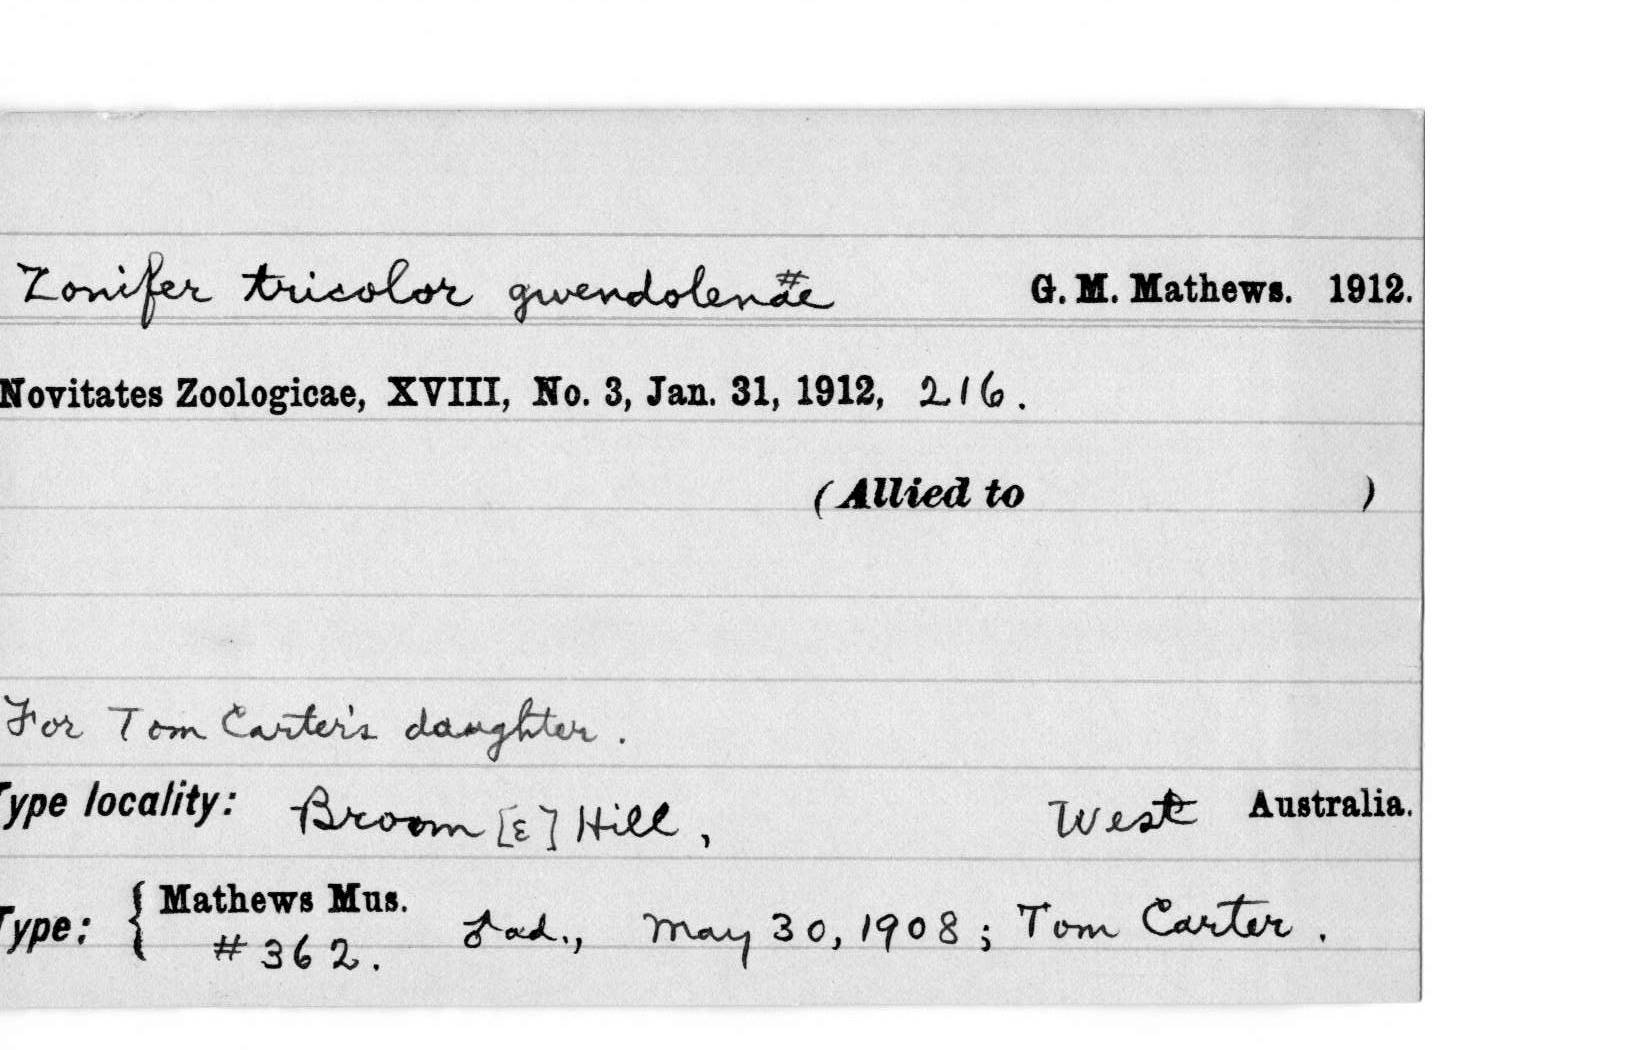 Zonifer tricolor gwendolenae # G. M. Mathews. 1912.
Novitates Zoologicae, XVIII, No. 3, Jan. 31, 1912, 216.
(Allied to )
For Tom Carter's daughter.
Type locality: Broom [e] Hill, West Australia.
Type: { Mathews Mus. ad., May 30, 1908; Tom Carter.
#362.